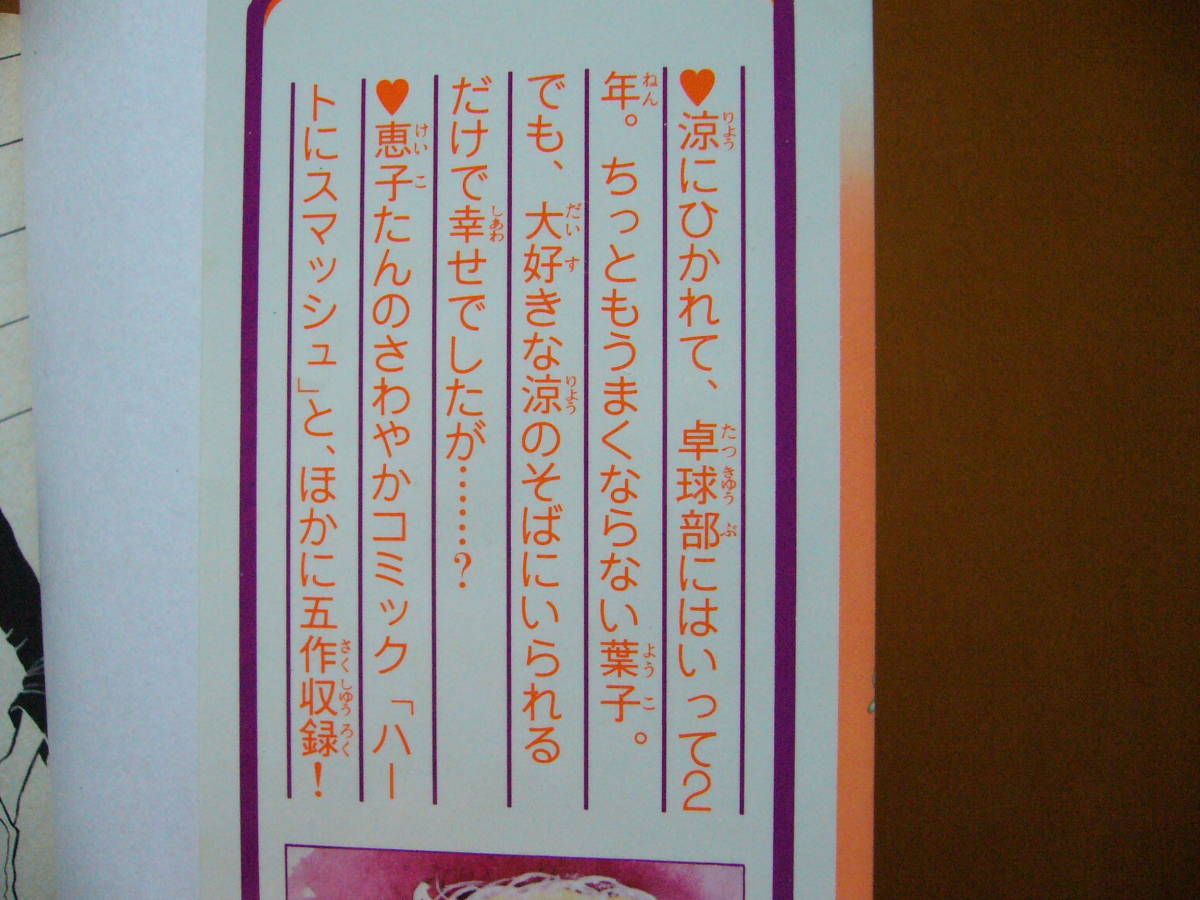 ♥涼にひかれて、卓球部にはいって2
年。ちっともうまくならない葉子。
でも、大好きな涼のそばにいられる
だけで幸せでしたが……?
♥恵子たんのさわやかコミック「ハー
トにスマッシュ」と、ほかに五作収録!